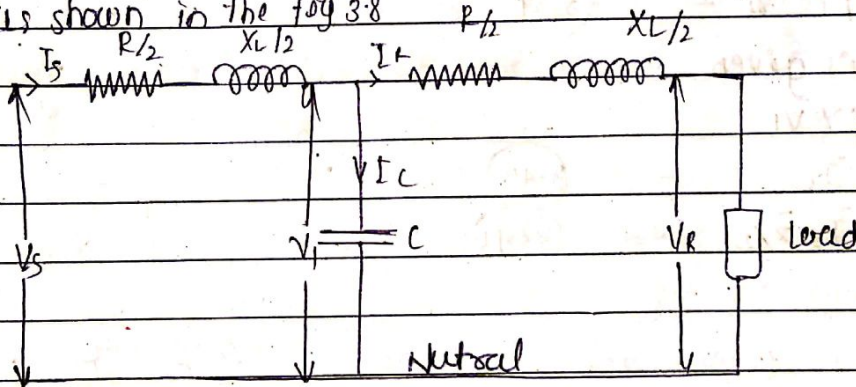 is shown in the fig 3.8
R/2 XL/2 R/2 XL/2
Is Ir
Ic
Vs V1 C VR Load
Nutral